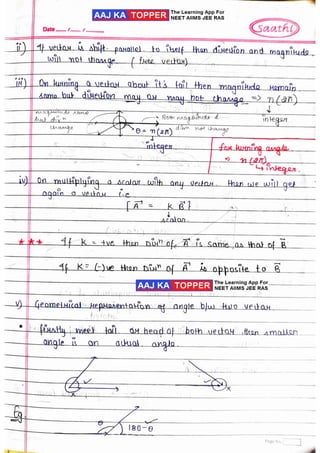 AAJ KA TOPPER The Learning App For
NEET AIIMS JEE RAS
Date
Saathi
ii) If vector is shift parallel to itself than direction and magnitude
will not change. (free vector)
iii) On turning a vector about it's tail then magnitude remain
same but direction may or may not change => n(2π)
magnitude same
but dirn
change
same magnitude &
dirn not change
integer
θ = n(2π)
integer
for turning angle
=> n(2π)
integer.
iv) On multiplying a scalar with any vector than we will get
again a vector i.e
{A = K B}
scalar
*** If K = +ve than Dirn of, A is same as that of B
If K = (-)ve then Dirn of A is opposite to B
AAJ KA TOPPER The Learning App For
NEET AIIMS JEE RAS
v) Geometrical representation of angle b/w two vector
• firstly meet tail or head of both vector then smaller
angle is an actual angle.
Eg.
θ
180-θ
Page No.